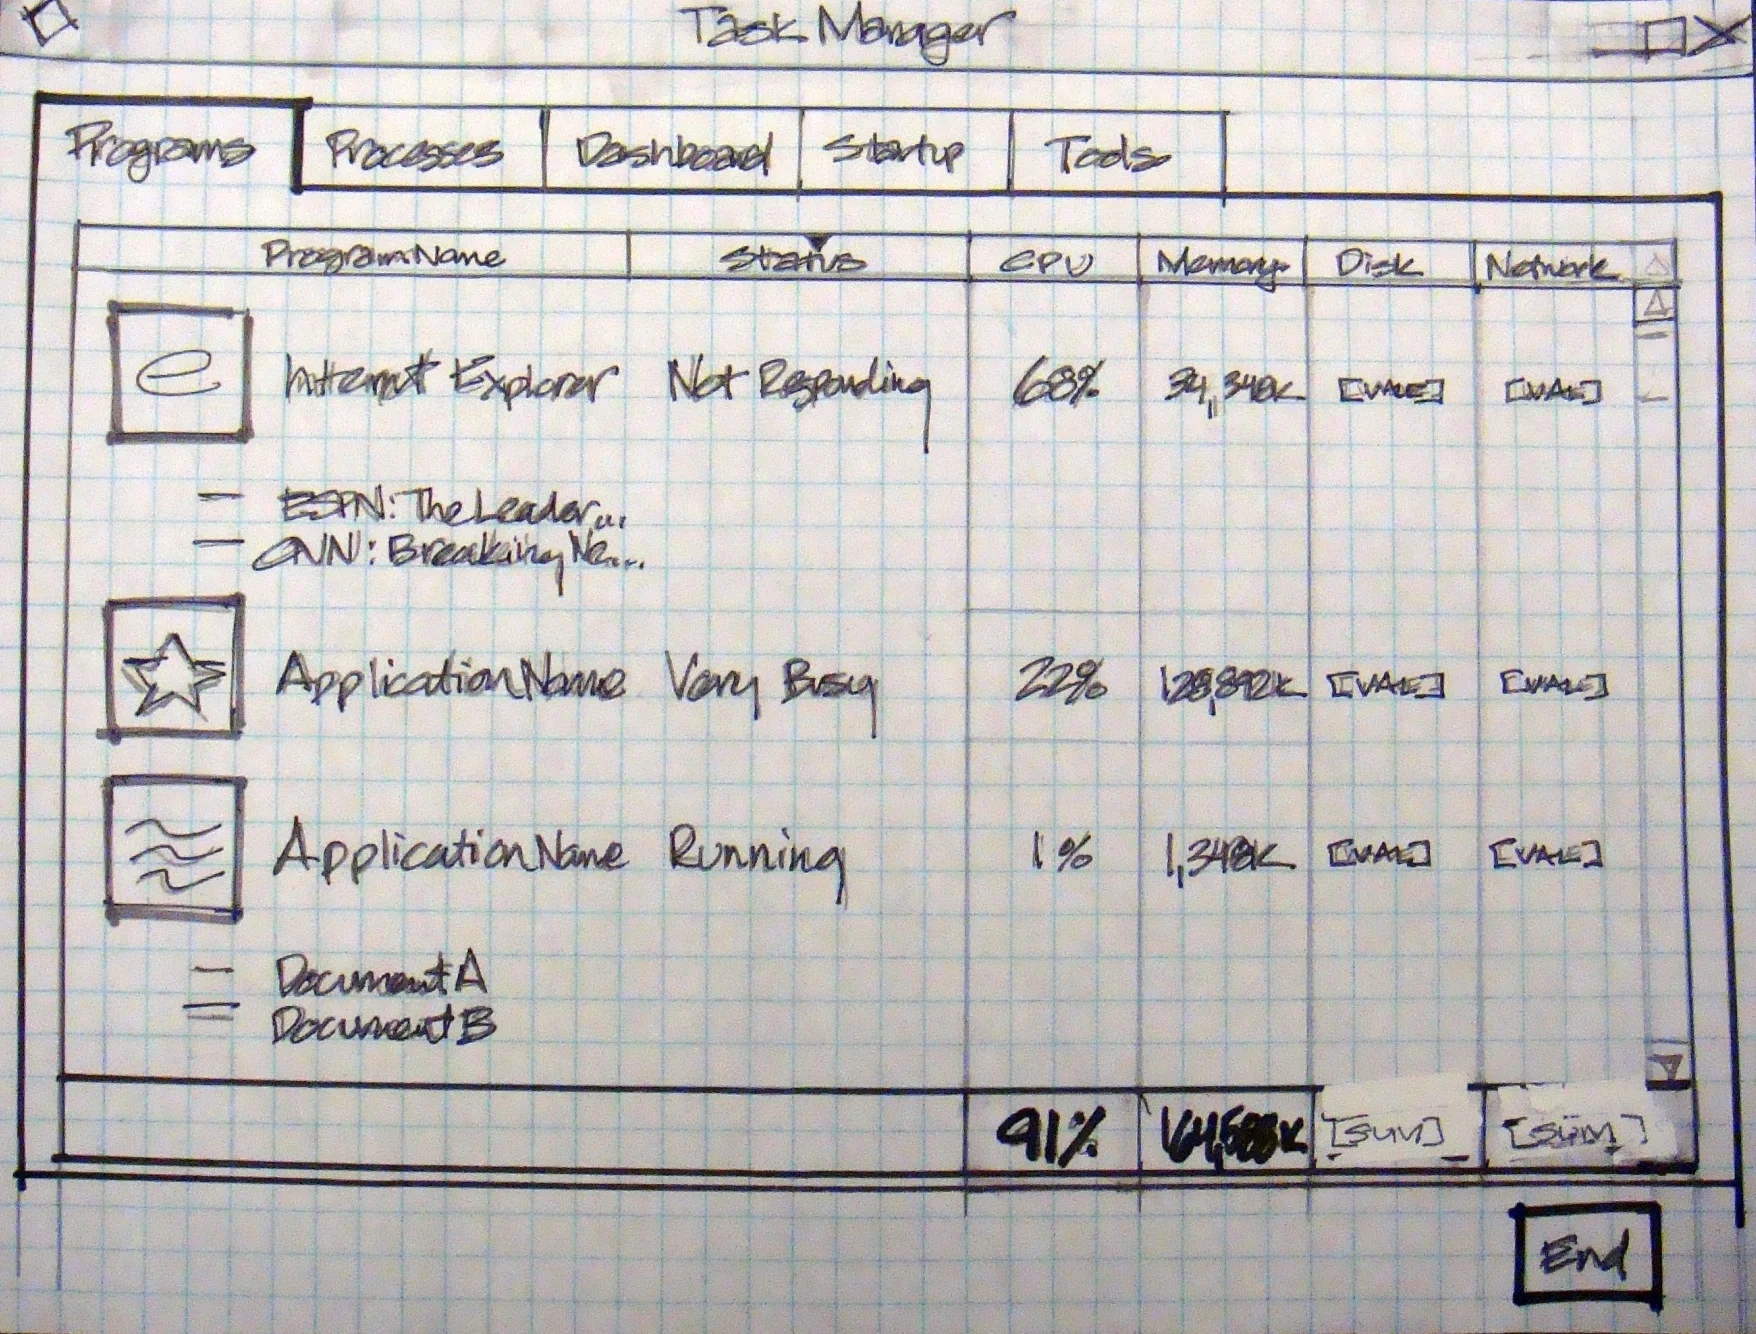 Task Manager
Programs Processes Dashboard Startup Tools
Program Name Status CPU Memory Disk Network
e Internet Explorer Not Responding 68% 34,348K [VALE] [VALE]
ESPN: The Leader...
CNN: Breaking Ne...
Application Name Very Busy 22% 128,892K [VALE] [VALE]
Application Name Running 1% 1,348K [VALE] [VALE]
Document A
Document B
91% 164,588K [SUM] [SUM]
End